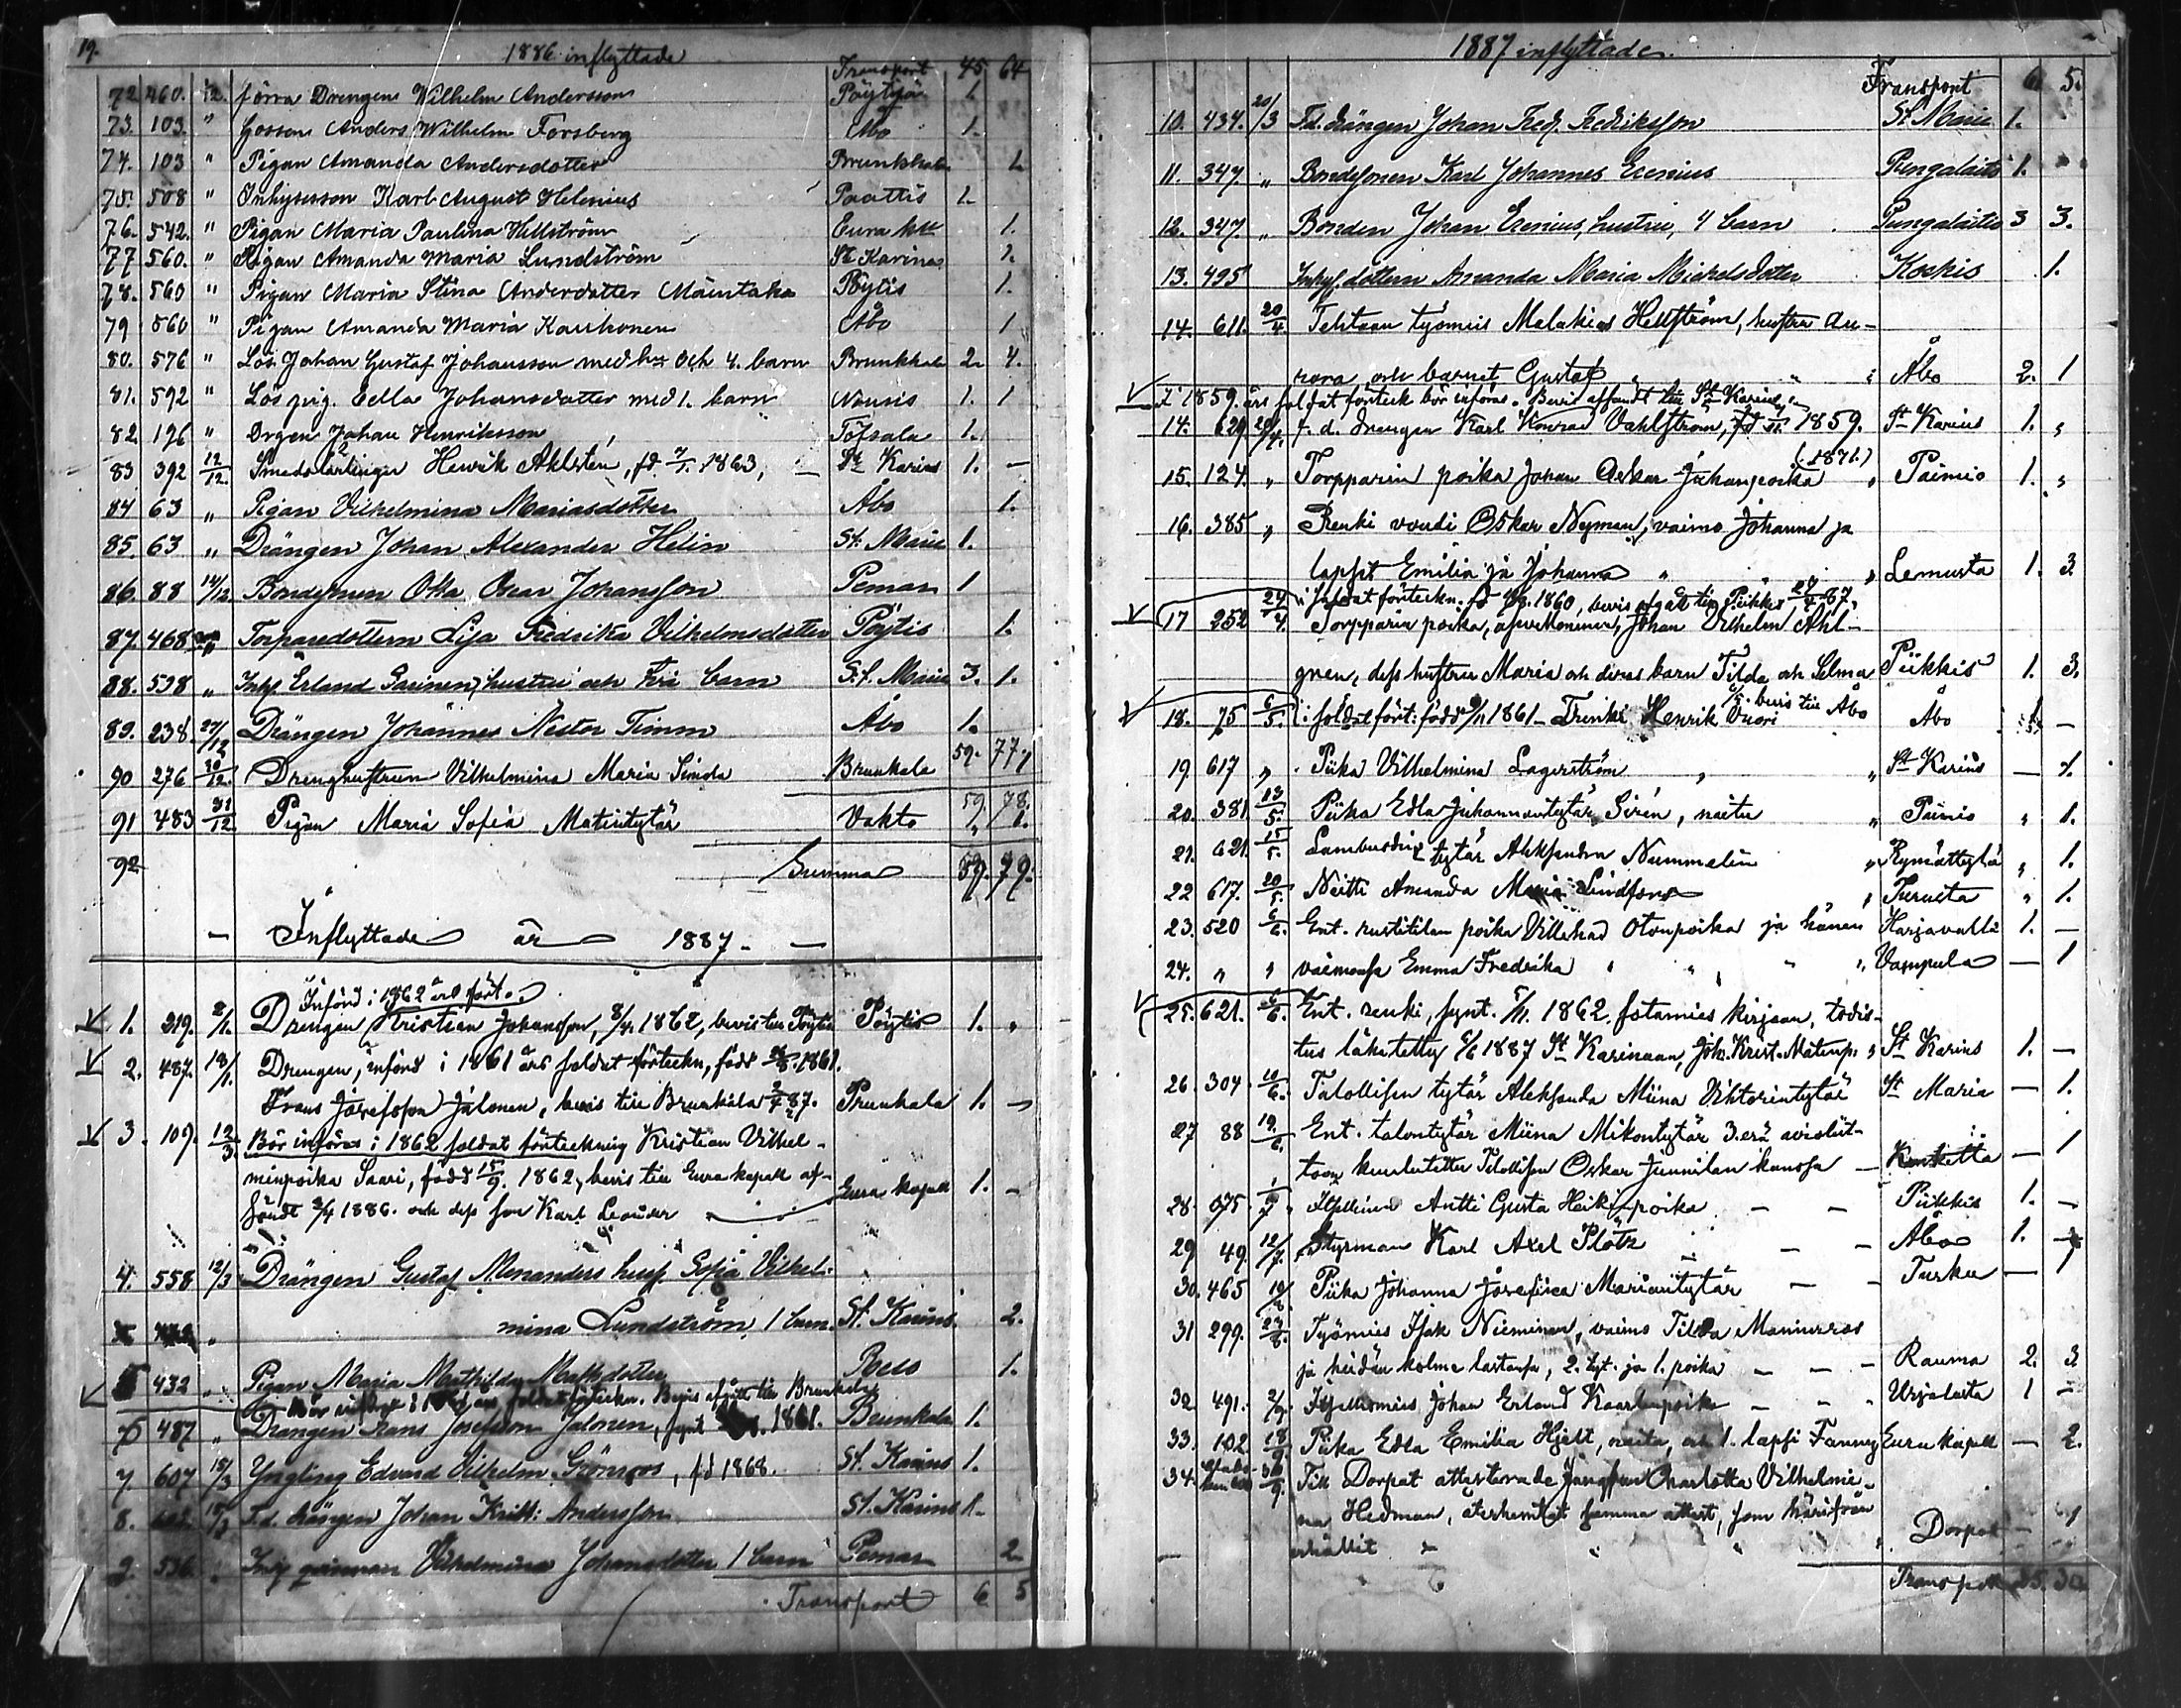 19.
1886 inflyttade
Transport 45 64
72 460. förra Drengen Wilhelm Andersson Pöytyä 1.
73. 103. " Gossen Anders Wilhelm Forsberg Åbo 1.
74. 103 " Pigan Amanda Andersdotter Brunkkala 1.
75. 508 " Inhyseson Karl August Helenius Paattis 1.
76. 542. " Pigan Maria Paulina Hellström Eura 1.
77 560. " Pigan Amanda Maria Lundström St Karines 1.
78. 560 " Pigan Maria Stina Andersdotter Mäentaka Pöytis 1.
79 560 " Pigan Amanda Maria Karhonen Åbo 1
80. 576 " Lös. Johan Gustaf Johansson med hu och 4. barn Brunkkala 2. 4.
81. 592 " Lös pig. Edla Johansdotter med 1. barn Nousis 1. 1
82 196 " Drgen Johan Henriksson Töfsala 1.
83 392 12/12. Smedslärlingen Henrik Ahlsten, fd 7/1. 1863, St Karins 1. —
84 63 " Pigan Vilhelmina Mariasdotter Åbo 1.
85. 63 " Drängen Johan Alexander Helin St. Marie 1.
86. 88 14/12. Bondesonen Otto Oscar Johansson Pemar 1
87. 468 Torparedottern Lisa Fredrika Vilhelmsdotter Pöytis 1.
88. 538 " Inhys Erland Sarinen, hustru och två barn S:t. Marie 3. 1.
89. 238. 27/12 Drängen Johannes Nestor Timm Åbo 1.
90 276 30/12. Drenghustrun Vilhelmina Maria Simola Brunkala 59. 77.
91 483 31/12 Pigan Maria Sofia Matintytär Vahto 59. 78. 1.
92 Summa 59. 79.
— Inflyttade år 1887 — —
Införd i 1862 års fört.
1. 219. 2/1. Drengen Kristian Johansson, 1862, bevis till Pöytis Pöytis 1. "
2. 487. 18/1. Drengen, införd i 1861 års soldat förteckn, född 1861.
Frans Josefsson Jalonen, bevis till Brunkala 87. Prunkala 1. —
3. 109. 12/3. Bör införas i 1862 soldat förteckning Kristian Vilhel-
minpoika Saari, född 15/9. 1862, bevis till Eura kapell af-
sändt 1886. och dess son Karl Leander Eura kapell 1. —
4. 558 12/3 Drängen Gustaf Menanders hust. Sofia Vilhel-
mina Lundström, 1 barn. St. Karins 2.
5 432 " Pigan Maria Mathilda Mattsdotter 1.
Bör införas i soldat förteckn. Bevis afgått till Brunkala
6 487 " Drängen Frans Josefsson Jalonen, 1861. Brunkala 1.
7. 607 15/3 Yngling Edvard Vilhelm Grönroos, fd 1868. St. Karins 1.
8. F.d. drängen Johan Krist: Andersson St. Karins 1.
9. 536 " Inhy qvinnan Vilhelmina Johansdotter 1 barn Pemar 2
Transport 6 5
1887 inflyttade
Transport 6. 5.
10. 434. 20/3 F.d. drängen Johan Fred. Fredriksson St. Marie 1.
11. 347. " Bondesonen Karl Johannes Erenius Pungalaitio 1.
12. 347. " Bonden Johan Erenius, hustru, 4 barn Pungalaitio 3 3.
13. 495 Inhys. dottern Amanda Maria Mickelsdotter Koskis 1.
14. 611. 20/4. Tehtaan työmies Malakias Hellström, hustru Au-
rora och barnet Gustaf " " Åbo 2. 1
i 1859. års soldat förteck bör införas. Bevis afsändt till St Karins
14. 629. 20/4. f. d. drengen Karl Konrad Vahlström, fd 1859. St Karins 1. "
15. 124. " Torpparin poika Johan Oskar Juhanpoika (1871.) " Paimio 1. "
16. 385 " Renki voudi Oskar Nyman, vaimo Johanna ja
lapset Emilia ja Johanna " " Lemusta 1. 3.
i soldat förteckn. fd 1860, bevis afgått till Piikkis 24/4 87.
17 252 24/4. Torpparin poika, Johan Vilhelm Ahl-
gren, dess hustru Maria och deras barn Tilda och Selma Piikkis 1. 3.
18. 75 6/5. i soldat fört: född 1861 - Trenki Henrik Vuori bevis till Åbo Åbo 1. —
19. 617 " Piika Vilhelmina Lagerström " St Karins — 1.
20. 381 13/5. Piika Edla Juhanantytär Sirén, naitu " Paimio " 1.
21. 621. 15/5. tytär Aleksandra Nummelin " Rymättylä " 1.
22 617. 20/5. Neitti Amanda Maria Lindfors " Turusta " 1.
23. 520 6/6. Ent. rustitilan poika Villehad Otonpoika ja hänen Harjavalta 1. —
24. " " vaimonsa Emma Fredrika " " " Vampula — 1
25. 621. 6/6. Ent. renki, synt. 5/11. 1862. sotamies kirjaan, todis-
tus lähetetty 1887 St Karinaan, Joh. Krist. Matinp. " St Karins 1. —
26. 304 10/6. Talollisen tytär Aleksanda Miina Viktorintytär St Maria — 1.
27 88 19/6. Ent. talontytär Miina Mikontytär 3.erä avioliit-
toon kuulutettu Talollisen Oskar Junnilan kanssa — — 1
28. 075. Itsellinen Antti Gusta Heikinpoika — — Piikkis 1. —
29 49. 12/7. Styrman Karl Axel Plötz — — Åbo 1. —
30. 465 Piika Johanna Josefina Mariantytär — — Turku — 1
31 299. 27/8. Työmies Isak Nieminen, vaimo Tilda Manneroos
ja heidän kolme lastansa, 2. tyt. ja 1. poika — — — Rauma 2. 3.
32 491. 2/9. Itsellismies Johan Erland Kaarlenpoika — — " Urjalasta 1 —
33. 102. 18/9 Piika Edla Emilia Hjelt, naitu, och 1. lapsi Fanny Eura kapell — 2.
34. Till Dorpat attesterade Jungfrun Charlotta Vilhelmi-
na Hedman, återhemtat samma attest, som härifrån
erhållit " " " Dorpat — 1
Transport 25. 30